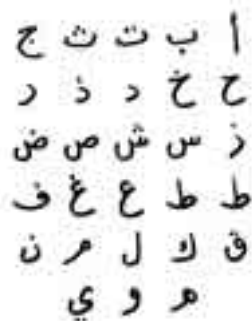 أ ب ت ث ج
ح خ د ذ ر
ز س ش ص ض
ط ط ع غ ف
ق ك ل م ن
م و ي